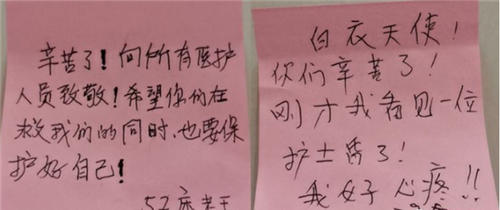 辛苦了!向所有医护
人员致敬!希望你们在
救我们的同时,也要保
护好自己!
52床老王
白衣天使!
你们辛苦了!
刚才我看见一位
护士哭了!
我好心疼!!